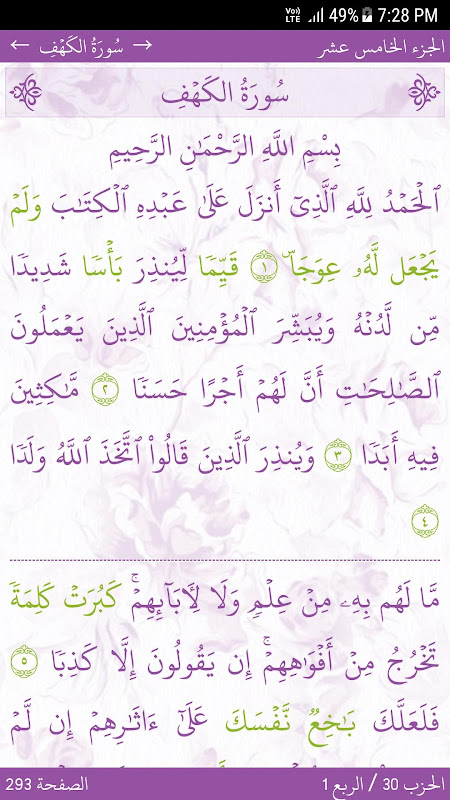 VoLTE 49% 7:28 PM
الجزء الخامس عشر → سُورَةُ الكَهْفِ ←
سُورَةُ الكَهْفِ
بِسْمِ اللَّهِ الرَّحْمَٰنِ الرَّحِيمِ
ٱلْحَمْدُ لِلَّهِ ٱلَّذِىٓ أَنزَلَ عَلَىٰ عَبْدِهِ ٱلْكِتَٰبَ وَلَمْ
يَجْعَل لَّهُۥ عِوَجَاۜ ١ قَيِّمًا لِّيُنذِرَ بَأْسًا شَدِيدًا
مِّن لَّدُنْهُ وَيُبَشِّرَ ٱلْمُؤْمِنِينَ ٱلَّذِينَ يَعْمَلُونَ
ٱلصَّٰلِحَٰتِ أَنَّ لَهُمْ أَجْرًا حَسَنًا ٢ مَّٰكِثِينَ
فِيهِ أَبَدًا ٣ وَيُنذِرَ ٱلَّذِينَ قَالُوا۟ ٱتَّخَذَ ٱللَّهُ وَلَدًا
٤
مَّا لَهُم بِهِۦ مِنْ عِلْمٍ وَلَا لِـَٔابَآئِهِمْ ۚ كَبُرَتْ كَلِمَةً
تَخْرُجُ مِنْ أَفْوَٰهِهِمْ ۚ إِن يَقُولُونَ إِلَّا كَذِبًا ٥
فَلَعَلَّكَ بَٰخِعٌ نَّفْسَكَ عَلَىٰٓ ءَاثَٰرِهِمْ إِن لَّمْ
الحزب 30 / الربع 1 الصفحة 293